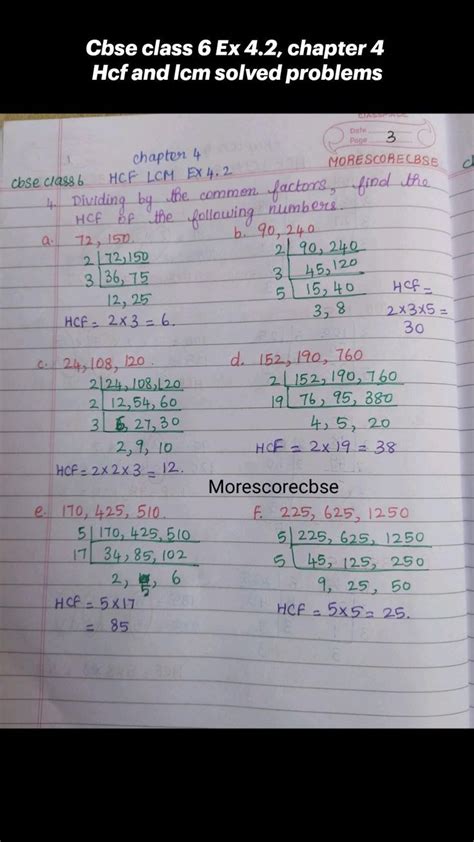 Cbse class 6 Ex 4.2, chapter 4
Hcf and lcm solved problems
CLASSMATE
Date
Page 3
chapter 4
MORESCORECBSE
cbse class 6 HCF LCM EX 4.2
4. Dividing by the common factors, find the
HCF of the following numbers.
a. 72, 150
2 | 72, 150
3 | 36, 75
12, 25
HCF = 2 x 3 = 6.
b. 90, 240
2 | 90, 240
3 | 45, 120
5 | 15, 40
3, 8
HCF =
2x3x5 =
30
c. 24, 108, 120
2 | 24, 108, 120
2 | 12, 54, 60
3 | 6, 27, 30
2, 9, 10
HCF = 2x2x3 = 12.
d. 152, 190, 760
2 | 152, 190, 760
19 | 76, 95, 380
4, 5, 20
HCF = 2x19 = 38
Morescorecbse
e. 170, 425, 510.
5 | 170, 425, 510
17 | 34, 85, 102
2, 5, 6
HCF = 5x17
= 85
f. 225, 625, 1250
5 | 225, 625, 1250
5 | 45, 125, 250
9, 25, 50
HCF = 5x5 = 25.